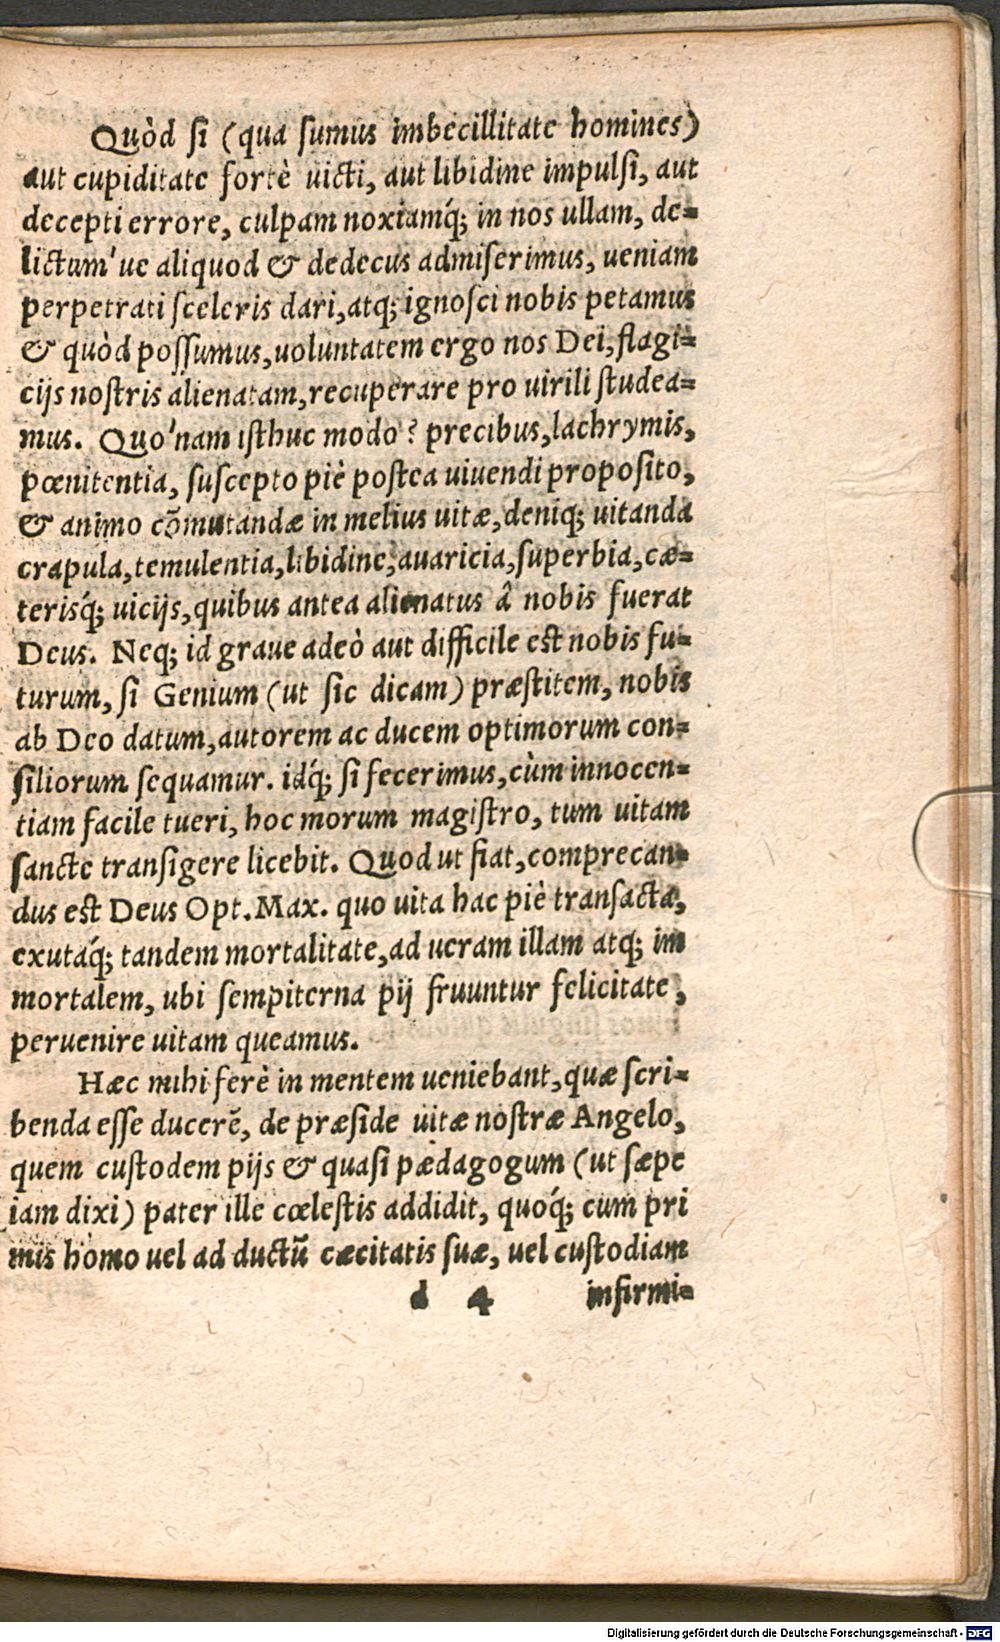 Quòd ſi (qua ſumus imbecillitate homines)
aut cupiditate fortè uicti, aut libidine impulſi, aut
decepti errore, culpam noxiamq́; in nos ullam, de-
lictum'ue aliquod & dedecus admiſerimus, ueniam
perpetrati ſceleris dari, atq; ignoſci nobis petamus
& quòd poſſumus, uoluntatem ergo nos Dei, flagi-
cijs noſtris alienatam, recuperare pro uirili ſtudea-
mus. Quo'nam iſthuc modo? precibus, lachrymis,
pœnitentia, suſcepto piè poſtea uiuendi propoſito,
& animo cõmutandæ in melius uitæ, deniq; uitanda
crapula, temulentia, libidine, auaricia, ſuperbia, cæ-
terisq́; uicijs, quibus antea alienatus â nobis fuerat
Deus. Neq; id graue adeò aut difficile eſt nobis fu-
turum, ſi Genium (ut ſic dicam) præſtitem, nobis
ab Deo datum, autorem ac ducem optimorum con-
ſiliorum ſequamur. idq́; ſi fecerimus, cùm innocen-
tiam facile tueri, hoc morum magiſtro, tum uitam
ſancte tranſigere licebit. Quod ut fiat, comprecan-
dus eſt Deus Opt. Max. quo uita hac piè tranſacta,
exutaq́; tandem mortalitate, ad ueram illam atq; im
mortalem, ubi ſempiterna pij fruuntur felicitate,
peruenire uitam queamus.
Hæc mihi ferè in mentem ueniebant, quæ ſcri-
benda eſſe ducerẽ, de præſide uitæ noſtræ Angelo,
quem cuſtodem pijs & quaſi pædagogum (ut ſæpe
iam dixi) pater ille cœleſtis addidit, quoq́; cum pri
mis homo uel ad ductũ cæcitatis ſuæ, uel cuſtodiam
d 4 infirmi-
Digitalisierung gefördert durch die Deutsche Forschungsgemeinschaft - DFG